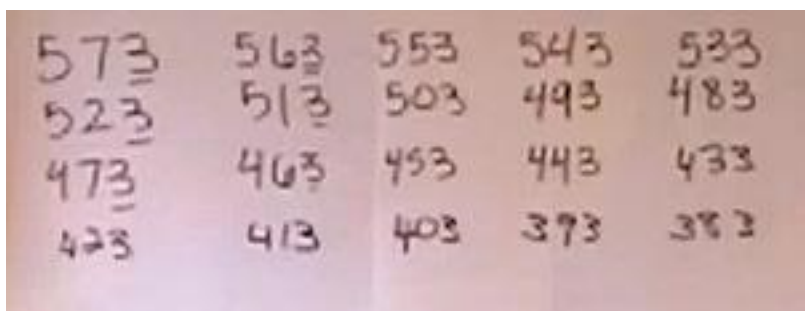 573 563 553 543 533
523 513 503 493 483
473 463 453 443 433
423 413 403 393 383